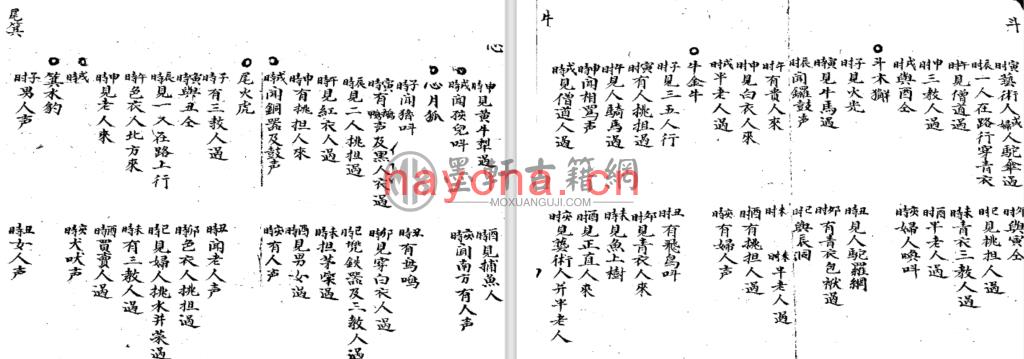 斗
寅时藝術或婦人駝傘過
卯时與寅仝
辰时一人在路行穿青衣
巳时見挑担過
午时見僧道過
未时青衣三教人過
申时三教人過
酉时半老人過
戌时與酉仝
亥时婦人喚呌
斗木獬
子时見火光
丑时見人駝羅網
寅时見牛馬過
卯时有青衣包袱過
辰时聞鑼鼓声
巳时與辰同
午时有貴人來
未时半老人過
申时見白衣人來
酉时有挑担人過
戌时半老人過
亥时有婦人過
牛
牛金牛
子时見三五人行
丑时有飛鳥呌
寅时有人挑担過
卯时見青衣人來
午时見人騎馬過
未时見魚上樹
申时聞相罵声
酉时見正直人來
戌时見僧道人過
亥时見藝術人并半老人
心
申時見黃牛犁過
酉時見捕魚人
戌時聞孩兒呌
亥時聞南方有人声
心月狐
子时聞猪呌
丑时有鳥鳴
寅時有鵝鴨声及黑人衣過
卯时見穿白衣人過
辰时見二人挑担過
巳时兜鉄器及三教人過
午时見紅衣人過
未时担茅柴過
申时有挑担人來
酉时見男女過
戌時聞銅器及鼓声
亥時有人声
尾火虎
子时有三教人過
丑时聞老人声
寅时與丑仝
卯時色衣人挑担過
辰時見一人又在路上行
巳时見婦人挑水并茶過
午時色衣人北方來
未時有三教人過
申时見老人來
酉時買賣人過
戌時
亥時犬吠声
尾箕
箕水豹
子时男人声
丑時女人声
墨軒古籍網
MOXUANGUJI.COM
nayona.cn